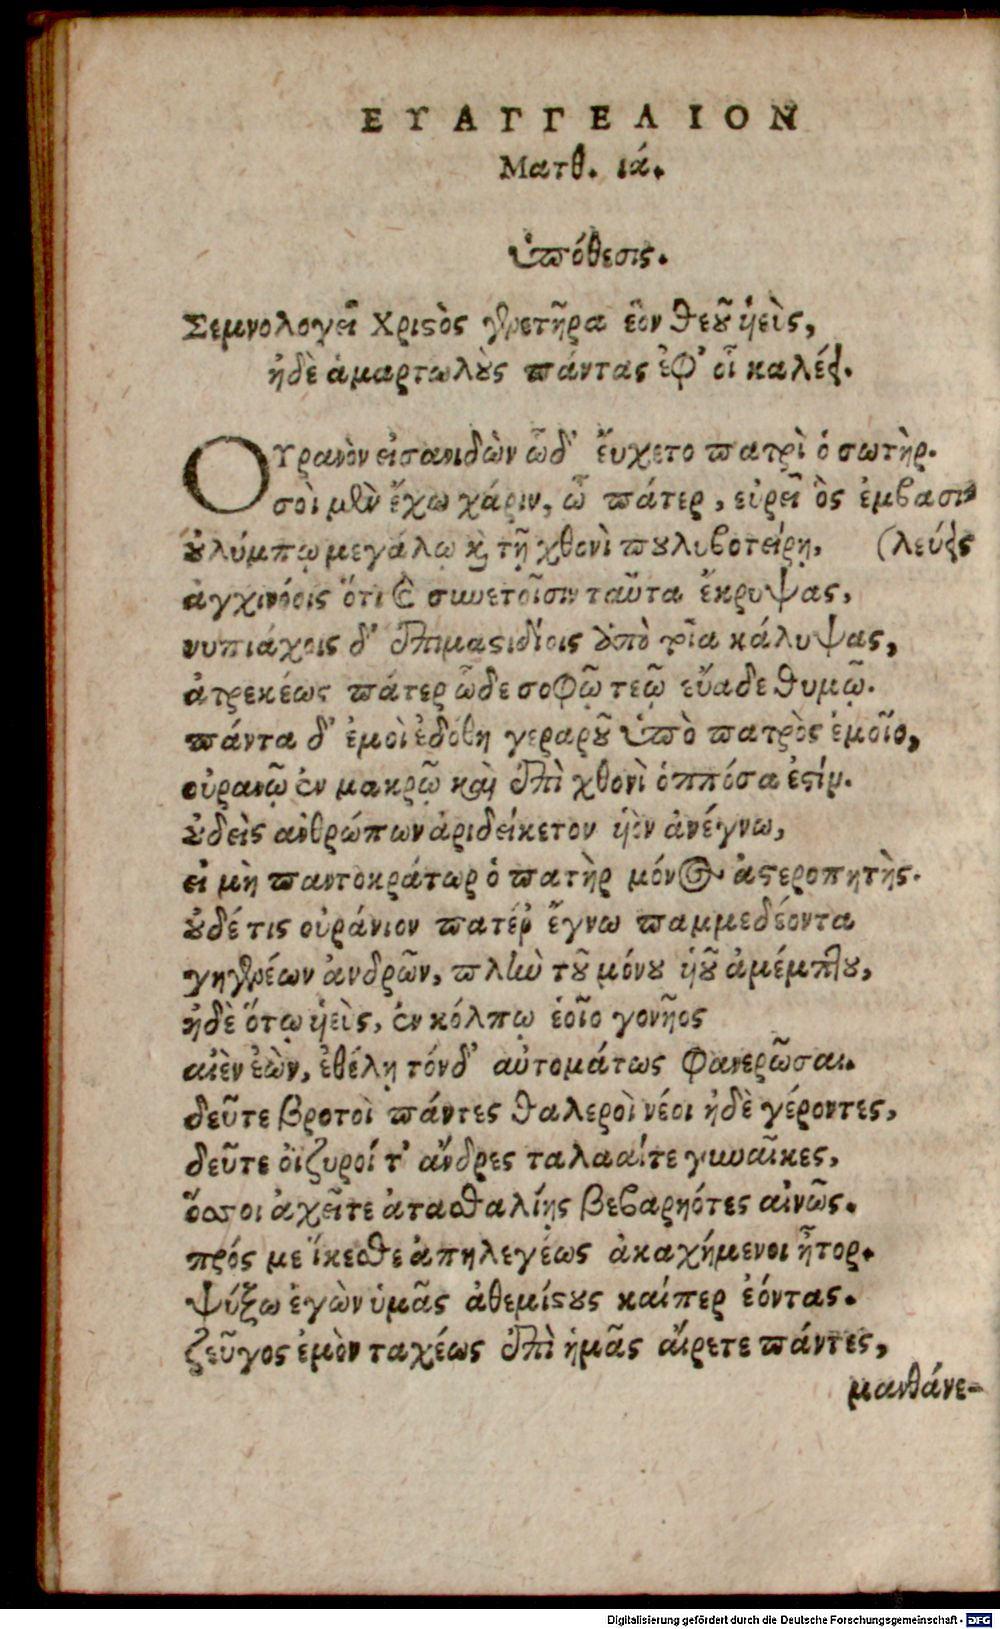 ΕΥΑΓΓΕΛΙΟΝ
Ματθ. ιά.
ὑπόθεσις.
Σεμνολογεῖ Χριστὸς γενετῆρα ἑὸν θεοῦ ἡεὶς,
ἠδὲ ἁμαρτωλοὺς πάντας ἐφ' οἷ καλέει.
ΟΥρανὸν εἰσανιδὼν ὧδ' εὔχετο πατρὶ ὁ σωτὴρ.
σοὶ μὲν ἔχω χάριν, ὦ πάτερ, εὐρεῖ ὃς ἐμβασι-
οὐλύμπῳ μεγάλῳ καὶ τῇ χθονὶ πουλυβοτείρῃ, (λεύεις
ἀγχινόοις ὅτι καὶ συνετοῖσιν ταῦτα ἔκρυψας,
νυπιάχοις δ' ἐπιμαστιδίοις ἀπὸ ῥία κάλυψας,
ἀτρεκέως πάτερ ὧδε σοφῷ τεῷ εὔαδε θυμῷ.
πάντα δ' ἐμοὶ ἐδόθη γεραροῦ ὑπὸ πατρὸς ἐμοῖο,
οὐρανῷ ἐν μακρῷ καὶ ἐπὶ χθονὶ ὁππόσα ἐστίν.
οὐδεὶς ἀνθρώπων ἀριδείκετον ἡὸν ἀνέγνω,
εἰ μὴ παντοκράτωρ ὁ πατὴρ μόνος ἀστεροπητὴς.
οὐδέ τις οὐράνιον πατέρ' ἔγνω παμμεδέοντα
γηγενέων ἀνδρῶν, πλὴν τοῦ μόνου ἡοῦ ἀμέμπτου,
ἠδὲ ὅτῳ ἡεὶς, ἐν κόλπῳ ἑοῖο γονῆος
αἰὲν ἐὼν, ἐθέλῃ τόνδ' αὐτομάτως φανερῶσαι.
δεῦτε βροτοὶ πάντες θαλεροὶ νέοι ἠδὲ γέροντες,
δεῦτε ὀϊζυροί τ' ἄνδρες ταλααί τε γυναῖκες,
ὅσσοι ἀχεῖτε ἀτασθαλίης βεβαρηότες αἰνῶς.
πρός με ἵκεσθε ἀπηλεγέως ἀκαχήμενοι ἦτορ.
ψύξω ἐγὼν ὑμᾶς ἀθεμίστους καίπερ ἐόντας.
ζεῦγος ἐμὸν ταχέως ἐπὶ ἡμᾶς αἴρετε πάντες,
μανθάνε-
Digitalisierung gefördert durch die Deutsche Forschungsgemeinschaft - DFG